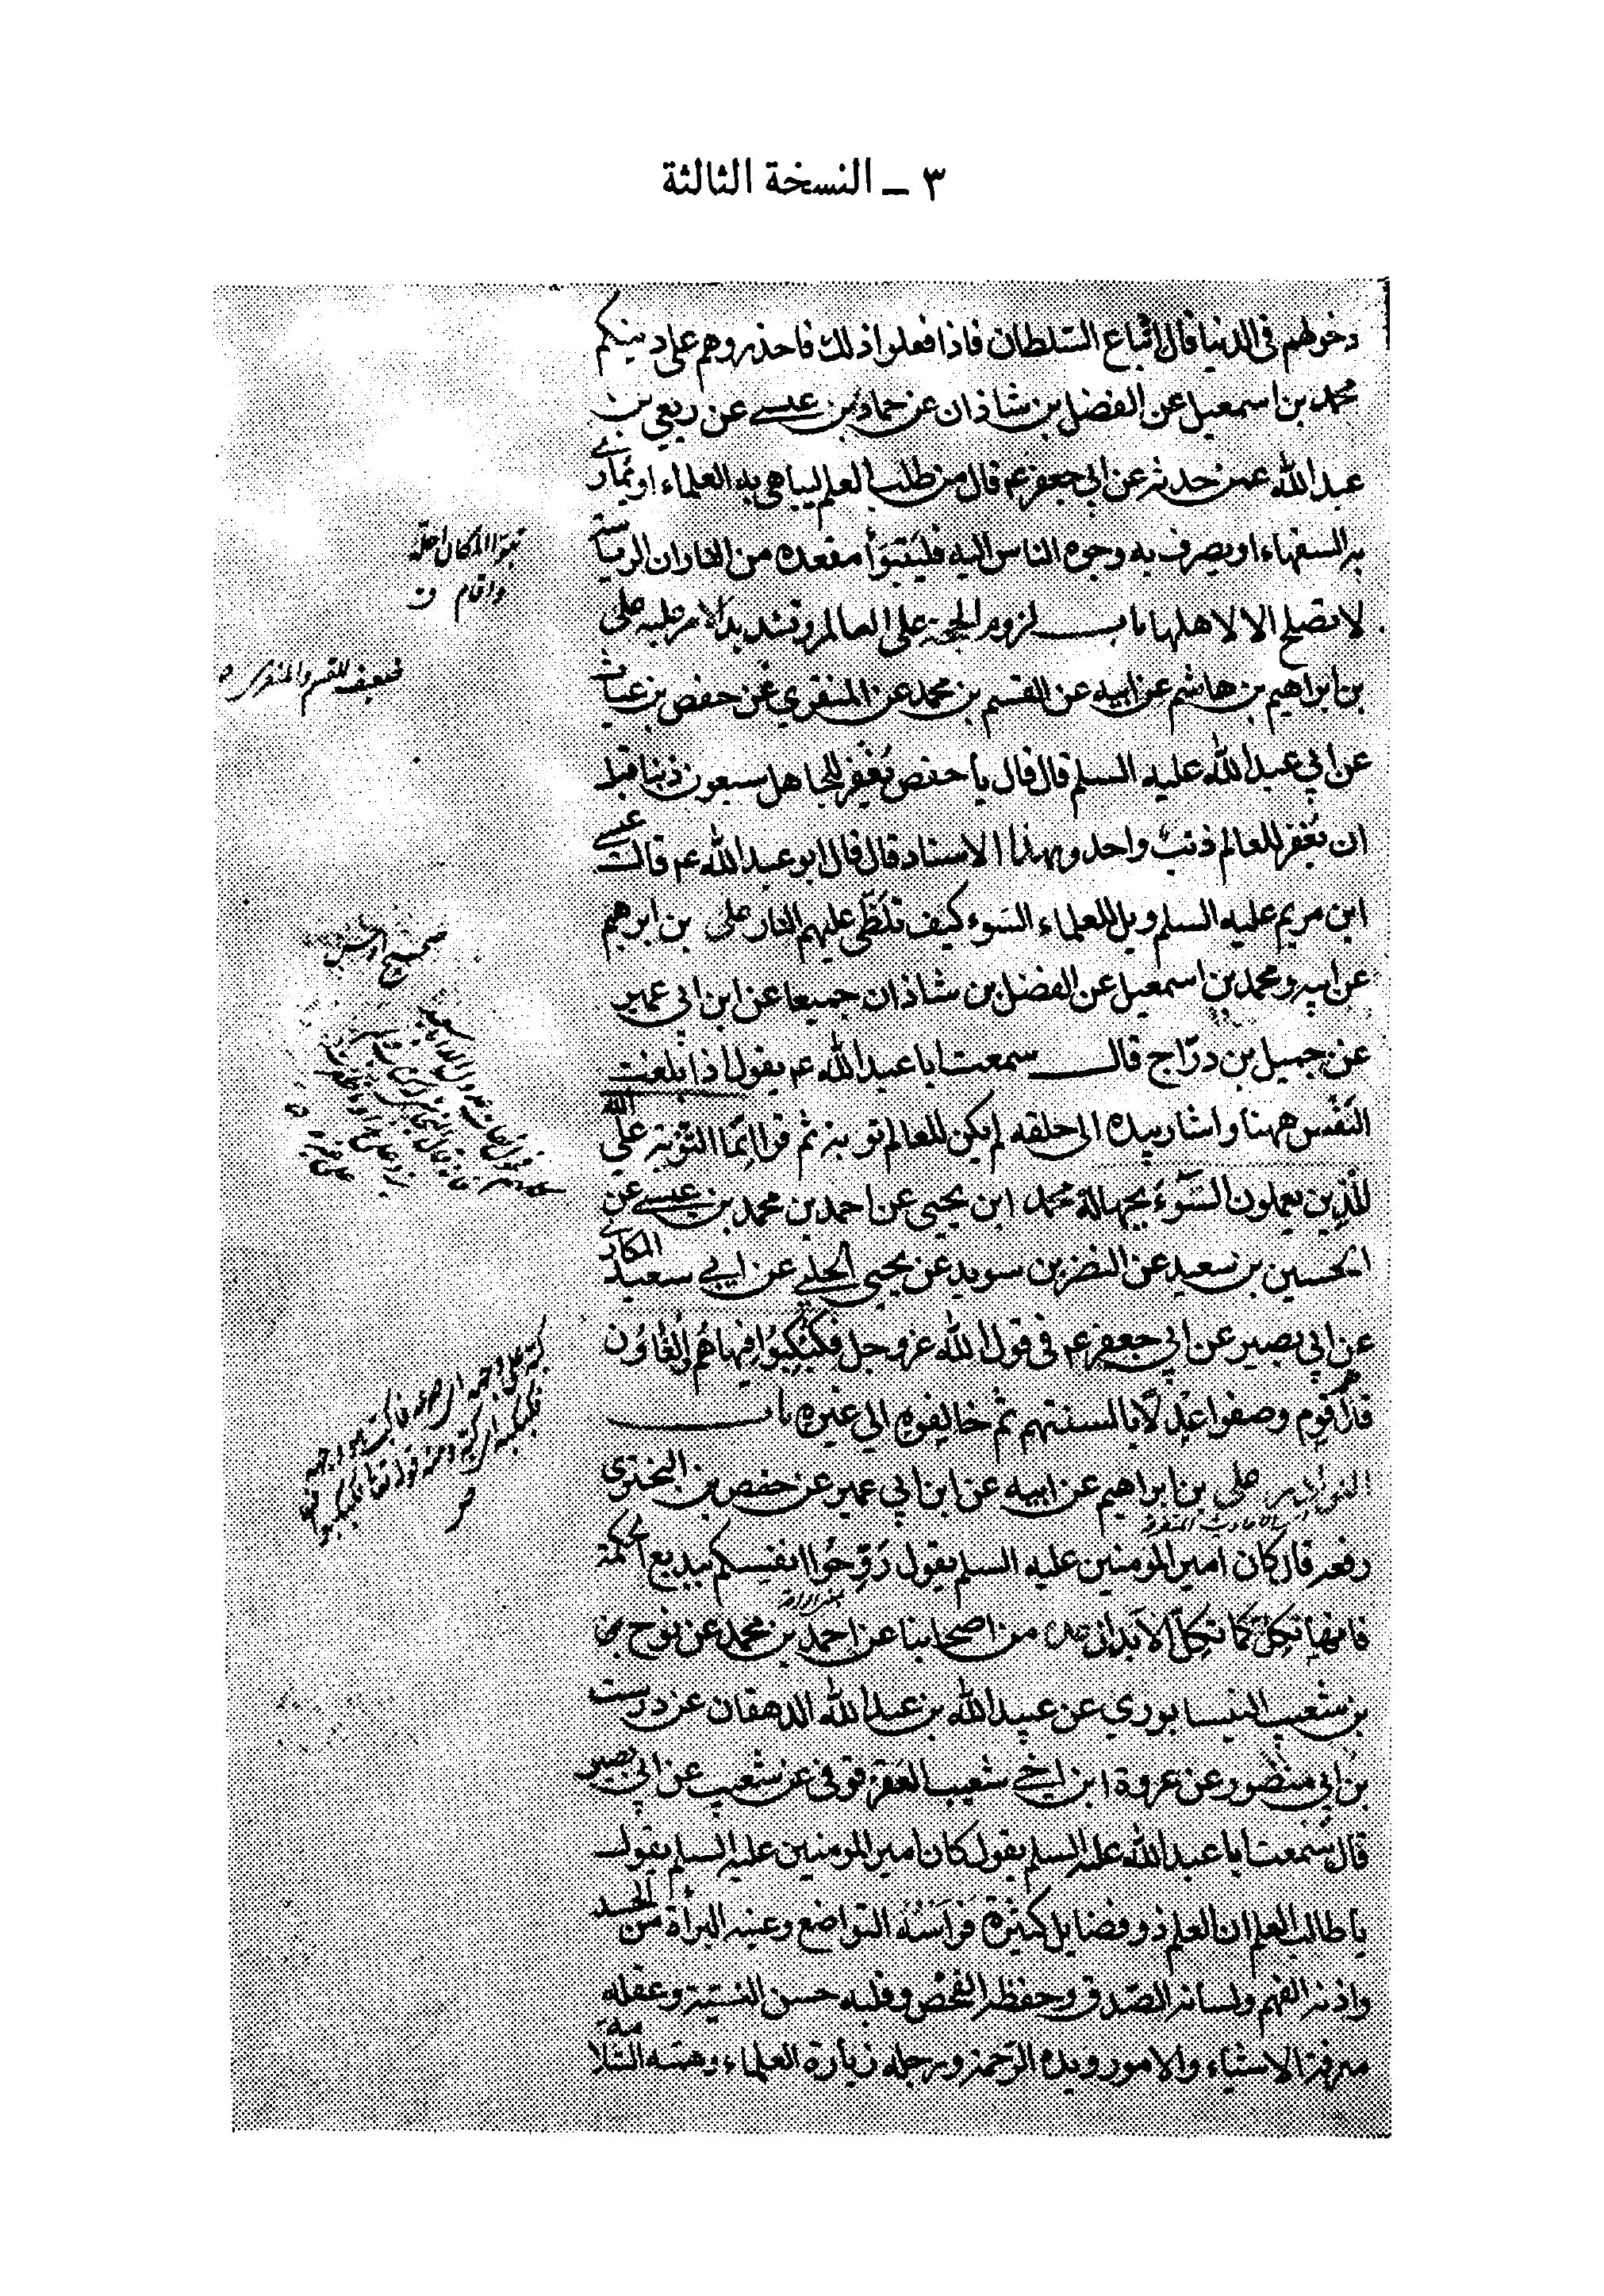 ٣ ــ النسخة الثالثة
دخولهم فى الدنيا قال اتباع السّلطان فاذا فعلوا ذلك فاحذروهم على دينكم
محمد بن اسمعيل عن الفضل بن شاذان عن حماد بن عيسى عن ربعى بن
عبد الله عمن حدثه عن ابي جعفر عم قال من طلب العلم ليباهى به العلماء او يمارى
به السفهاء او يصرف به وجوه الناس اليه فليتبوّأ مقعده من النار ان الرياسة
لا تصلح الا لاهلها باب لزوم الحجة على العالم وتشديد الامر عليه على
بن ابراهيم بن هاشم عن ابيه عن القسم بن محمد عن المنقري عن حفص بن غياث
عن ابي عبد الله عليه السلم قال قال يا حفص يُغفر للجاهل سبعون ذنبا قبل
ان يُغفر للعالم ذنبٌ واحد وبهذا الاسناد قال قال ابو عبد الله عم قال عيسى
ابن مريم عليه السلم ويل للعلماء السّوء كيف تلظّى عليهم النار على بن ابرهيم
عن ابيه ومحمد بن اسمعيل عن الفضل بن شاذان جميعا عن ابن ابي عمير
عن جميل بن درّاج قال سمعت ابا عبد الله عم يقول اذا بلغت
النّفس ههنا واشار بيده الى حلقه لم يكن للعالم توبة ثم قرا انّما التّوبة على الله
للّذين يعملون السّوءَ بجهالة محمد ابن يحيى عن احمد بن محمد بن عيسى عن
الحسين بن سعيد عن النضر بن سويد عن يحيى الحلبي عن ابي سعيد المكارى
عن ابي بصير عن ابي جعفر عم فى قول الله عز وجل فكُبْكِبُوا فيها هُم والْغاوُن
قال هم قوم وصفوا عدْلًا بالسنتهم ثم خالفوه الى غيره باب
النوادر على بن ابراهيم عن ابيه عن ابن ابي عمير عن حفص بن البخترى
رفعه قال كان امير المؤمنين عليه السلم يقول رَوِّحُوا انفسكم ببديع الحكمة
فانها تكلّ كما تكلّ الابدان عدة من اصحابنا عن احمد بن محمد عن نوح بن
بن شعيب النيسابوري عن عبيد الله بن عبد الله الدهقان عن درست
بن ابي منصور عن عروة ابن اخي شعيب العقرقوفى عن شعيب عن ابي بصير
قال سمعت ابا عبد الله عليه السلم يقول كان امير المؤمنين عليه السلم يقول
يا طالب العلم ان العلم ذو فضايل كثيرة فرأسُه التواضع وعينه البرأة من الحسد
واذنه الفهم ولسانه الصّدق وحفظه الفحص وقلبه حسن النيّة وعقله
معرفة الاشياء والامور ويده الرّحمة ورجله زيارة العلماء وهمّته السّلامة
تبوّا المكان احلّه
واقام ق
ضعيف للقسم والمنقرى